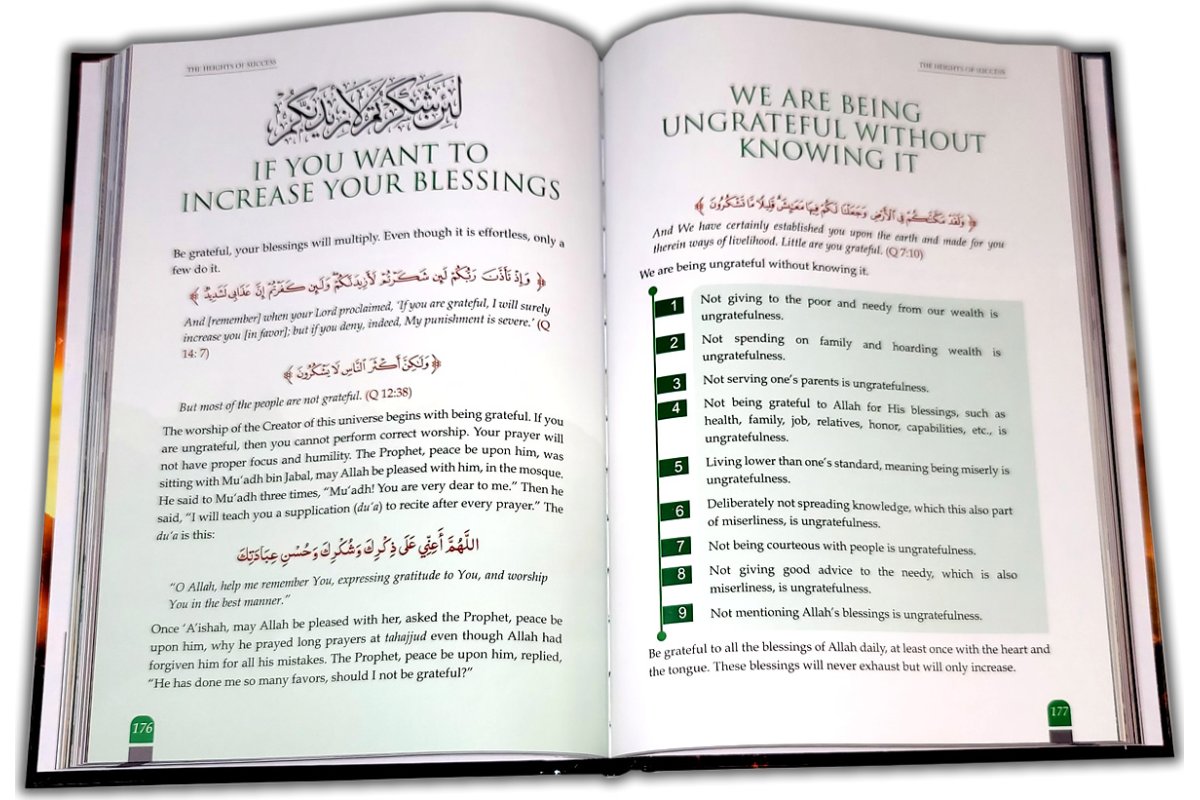 THE HEIGHTS OF SUCCESS
لَئِن شَكَرْتُمْ لَأَزِيدَنَّكُمْ
IF YOU WANT TO
INCREASE YOUR BLESSINGS
Be grateful, your blessings will multiply. Even though it is effortless, only a
few do it.
﴿ وَإِذْ تَأَذَّنَ رَبُّكُمْ لَئِن شَكَرْتُمْ لَأَزِيدَنَّكُمْ وَلَئِن كَفَرْتُمْ إِنَّ عَذَابِي لَشَدِيدٌ ﴾
And [remember] when your Lord proclaimed, ‘If you are grateful, I will surely
increase you [in favor]; but if you deny, indeed, My punishment is severe.’ (Q
14: 7)
﴿ وَلَٰكِنَّ أَكْثَرَ النَّاسِ لَا يَشْكُرُونَ ﴾
But most of the people are not grateful. (Q 12:38)
The worship of the Creator of this universe begins with being grateful. If you
are ungrateful, then you cannot perform correct worship. Your prayer will
not have proper focus and humility. The Prophet, peace be upon him, was
sitting with Mu‘adh bin Jabal, may Allah be pleased with him, in the mosque.
He said to Mu‘adh three times, “Mu‘adh! You are very dear to me.” Then he
said, “I will teach you a supplication (du‘a) to recite after every prayer.” The
du‘a is this:
اللَّهُمَّ أَعِنِّي عَلَى ذِكْرِكَ وَشُكْرِكَ وَحُسْنِ عِبَادَتِكَ
“O Allah, help me remember You, expressing gratitude to You, and worship
You in the best manner.”
Once ‘A’ishah, may Allah be pleased with her, asked the Prophet, peace be
upon him, why he prayed long prayers at tahajjud even though Allah had
forgiven him for all his mistakes. The Prophet, peace be upon him, replied,
“He has done me so many favors, should I not be grateful?”
176
THE HEIGHTS OF SUCCESS
WE ARE BEING
UNGRATEFUL WITHOUT
KNOWING IT
﴿ وَلَقَدْ مَكَّنَّاكُمْ فِي الْأَرْضِ وَجَعَلْنَا لَكُمْ فِيهَا مَعَايِشَ قَلِيلًا مَّا تَشْكُرُونَ ﴾
And We have certainly established you upon the earth and made for you
therein ways of livelihood. Little are you grateful. (Q 7:10)
We are being ungrateful without knowing it.
1 Not giving to the poor and needy from our wealth is
ungratefulness.
2 Not spending on family and hoarding wealth is
ungratefulness.
3 Not serving one’s parents is ungratefulness.
4 Not being grateful to Allah for His blessings, such as
health, family, job, relatives, honor, capabilities, etc., is
ungratefulness.
5 Living lower than one’s standard, meaning being miserly is
ungratefulness.
6 Deliberately not spreading knowledge, which this also part
of miserliness, is ungratefulness.
7 Not being courteous with people is ungratefulness.
8 Not giving good advice to the needy, which is also
miserliness, is ungratefulness.
9 Not mentioning Allah’s blessings is ungratefulness.
Be grateful to all the blessings of Allah daily, at least once with the heart and
the tongue. These blessings will never exhaust but will only increase.
177